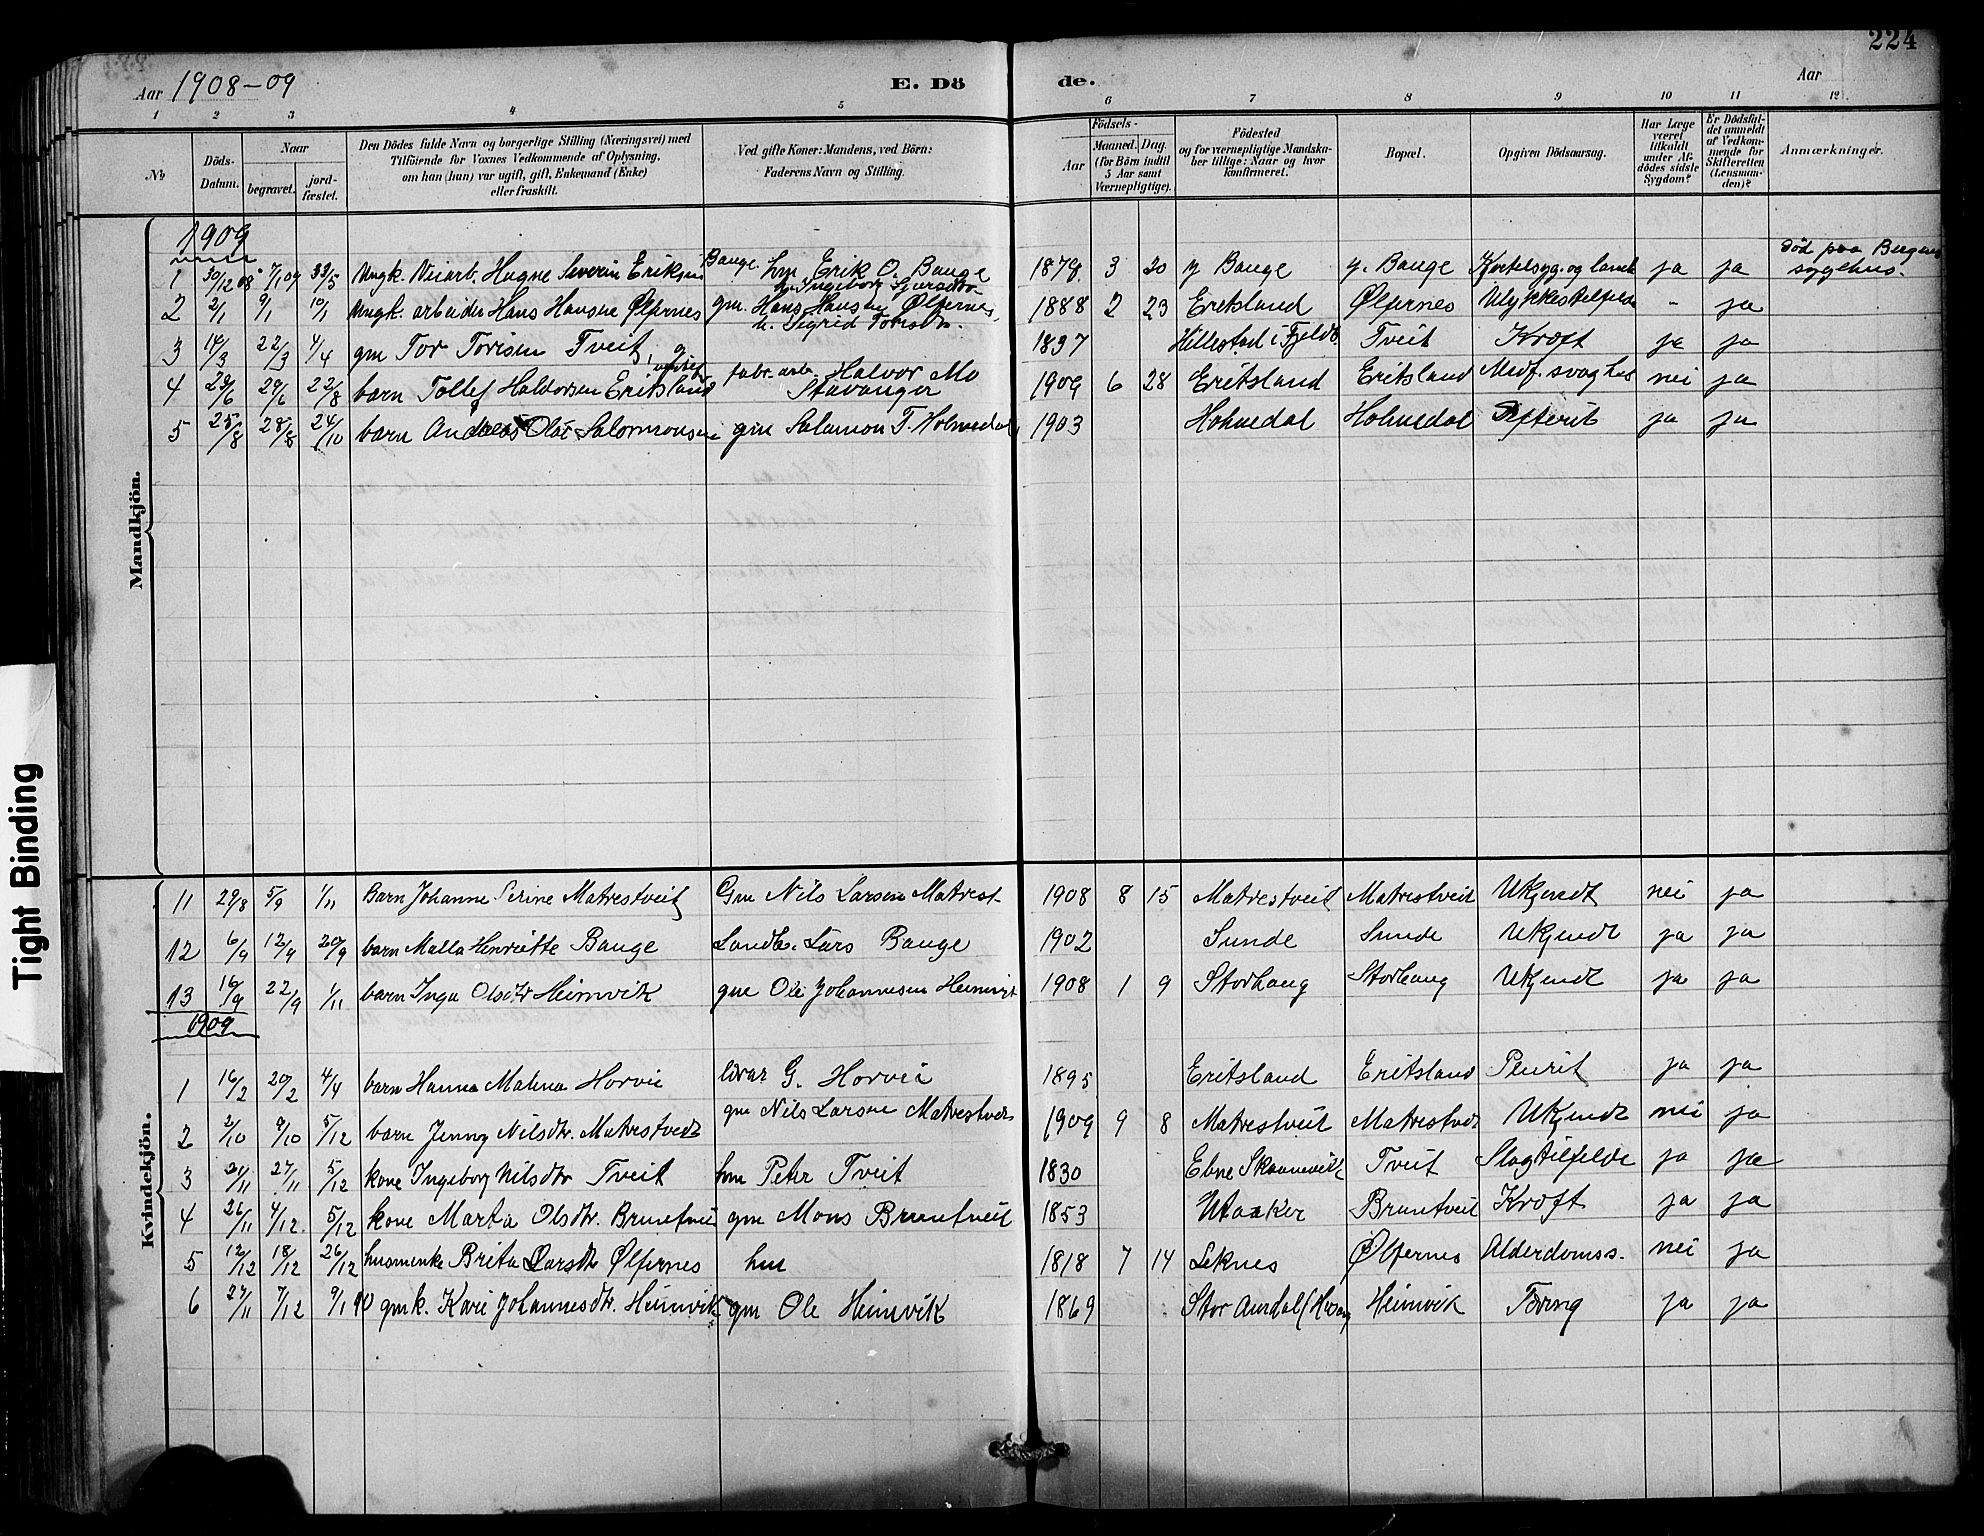 224
Aar 1908-09 E. Döde. Aar
1 2 3 4 5 6 7 8 9 10 11 12.
No Döds-Datum. Naar begravet. jordfæstet. Den Dödes fulde Navn og borgerlige Stilling (Næringsvei) med Tilföiende for Voxnes Vedkommende af Oplysning, om han (hun) var ugift, gift, Enkemand (Enke) eller fraskilt. Ved gifte Koner: Mandens, ved Börn: Faderens Navn og Stilling. Födsels- Aar Maaned. Dag. (for Börn indtil 5 Aar samt Værnepligtige). Födested og for værnepligtige Mandskaber tillige: Naar og hvor konfirmeret. Bopæl. Opgiven Dödsaarsag. Har Læge været tilkaldt under Afdödes sidste Sygdom? Er Dödsfaldet anmeldt af Vedkommende for Skifteretten (Lensmanden)? Anmærkninger.
Mandkjön.
1909
1 30/12 08 7/1 09 23/5 Ungk. Veiarb. Severin Eriksen Bauge hm Erik O. Bauge 1879 3 20 y Bauge y. Bauge ja ja død paa Bergens sygehus.
2 2/1 9/1 10/1 Ungk. arbeider Hans Hansen Ølfernes gm. Hans Hansen Ølfernes, h. Sigrid 1888 2 23 Eritsland Ølfernes - ja
3 14/3 22/3 4/4 gm Tor Torisen Tveit 1837 Hillestad i Fjeldb. Tveit Kræft ja ja
4 29/6 22/8 barn Tollef Haldorsen Eritsland fabr. arb. Halvor Mo Stavanger 1909 6 28 Eritsland Eritsland Medf. svaghed nei ja
5 25/8 28/8 24/10 barn Andreas Olai Salomonsen gm Salamon T. Holmedal 1903 Holmedal Holmedal Difterit ja ja
Kvindekjön.
11 29/8 5/9 1/11 Barn Johanne Serine Matrestveit Gm Nils Larsen Matrest- 1908 8 15 Matrestveit Matrestveit Ukjendt nei ja
12 6/9 12/9 20/9 barn Malla Henriette Bauge Landh. Lars Bauge 1902 Sunde Sunde Ukjendt ja ja
13 16/9 22/9 1/11 barn Inga Olsdtr Heimvik gm Ole Johannesen Heimvik 1908 1 9 Storhaug Storhaug Ukjendt ja ja
1909
1 16/2 20/2 4/4 barn Hanna Malena Horvei G. Horvei 1895 Eritsland Eritsland Plurit ja ja
2 2/10 9/10 5/12 barn Jenny Nilsdtr. Matrestvedt gm Nils Larsen Matrestvedt 1909 9 8 Matrestveit Matrestvedt Ukjendt nei ja
3 21/11 27/11 5/12 kone Ingeborg Nilsdtr Tveit hm Peter Tveit 1830 Ebne Skaanevik Tveit Slagtilfelde ja ja
4 26/11 4/12. 5/12 kone Marta Olsdtr. Bruntveit gm Mons Bruntveit 1853 Utaaker Bruntveit Kræft ja ja
5 12/12 18/12 26/12 husmenke Brita Larsdtr Ølfernes hm 1818 7 14 Leknes Ølfernes Alderdomss. nei ja
6 27/11 7/12 9/1 10 gmk. Kari Johannesdtr. Heimvik gm Ole Heimvik 1869 Stor Aardal Heimvik Tæring ja ja
Tight Binding